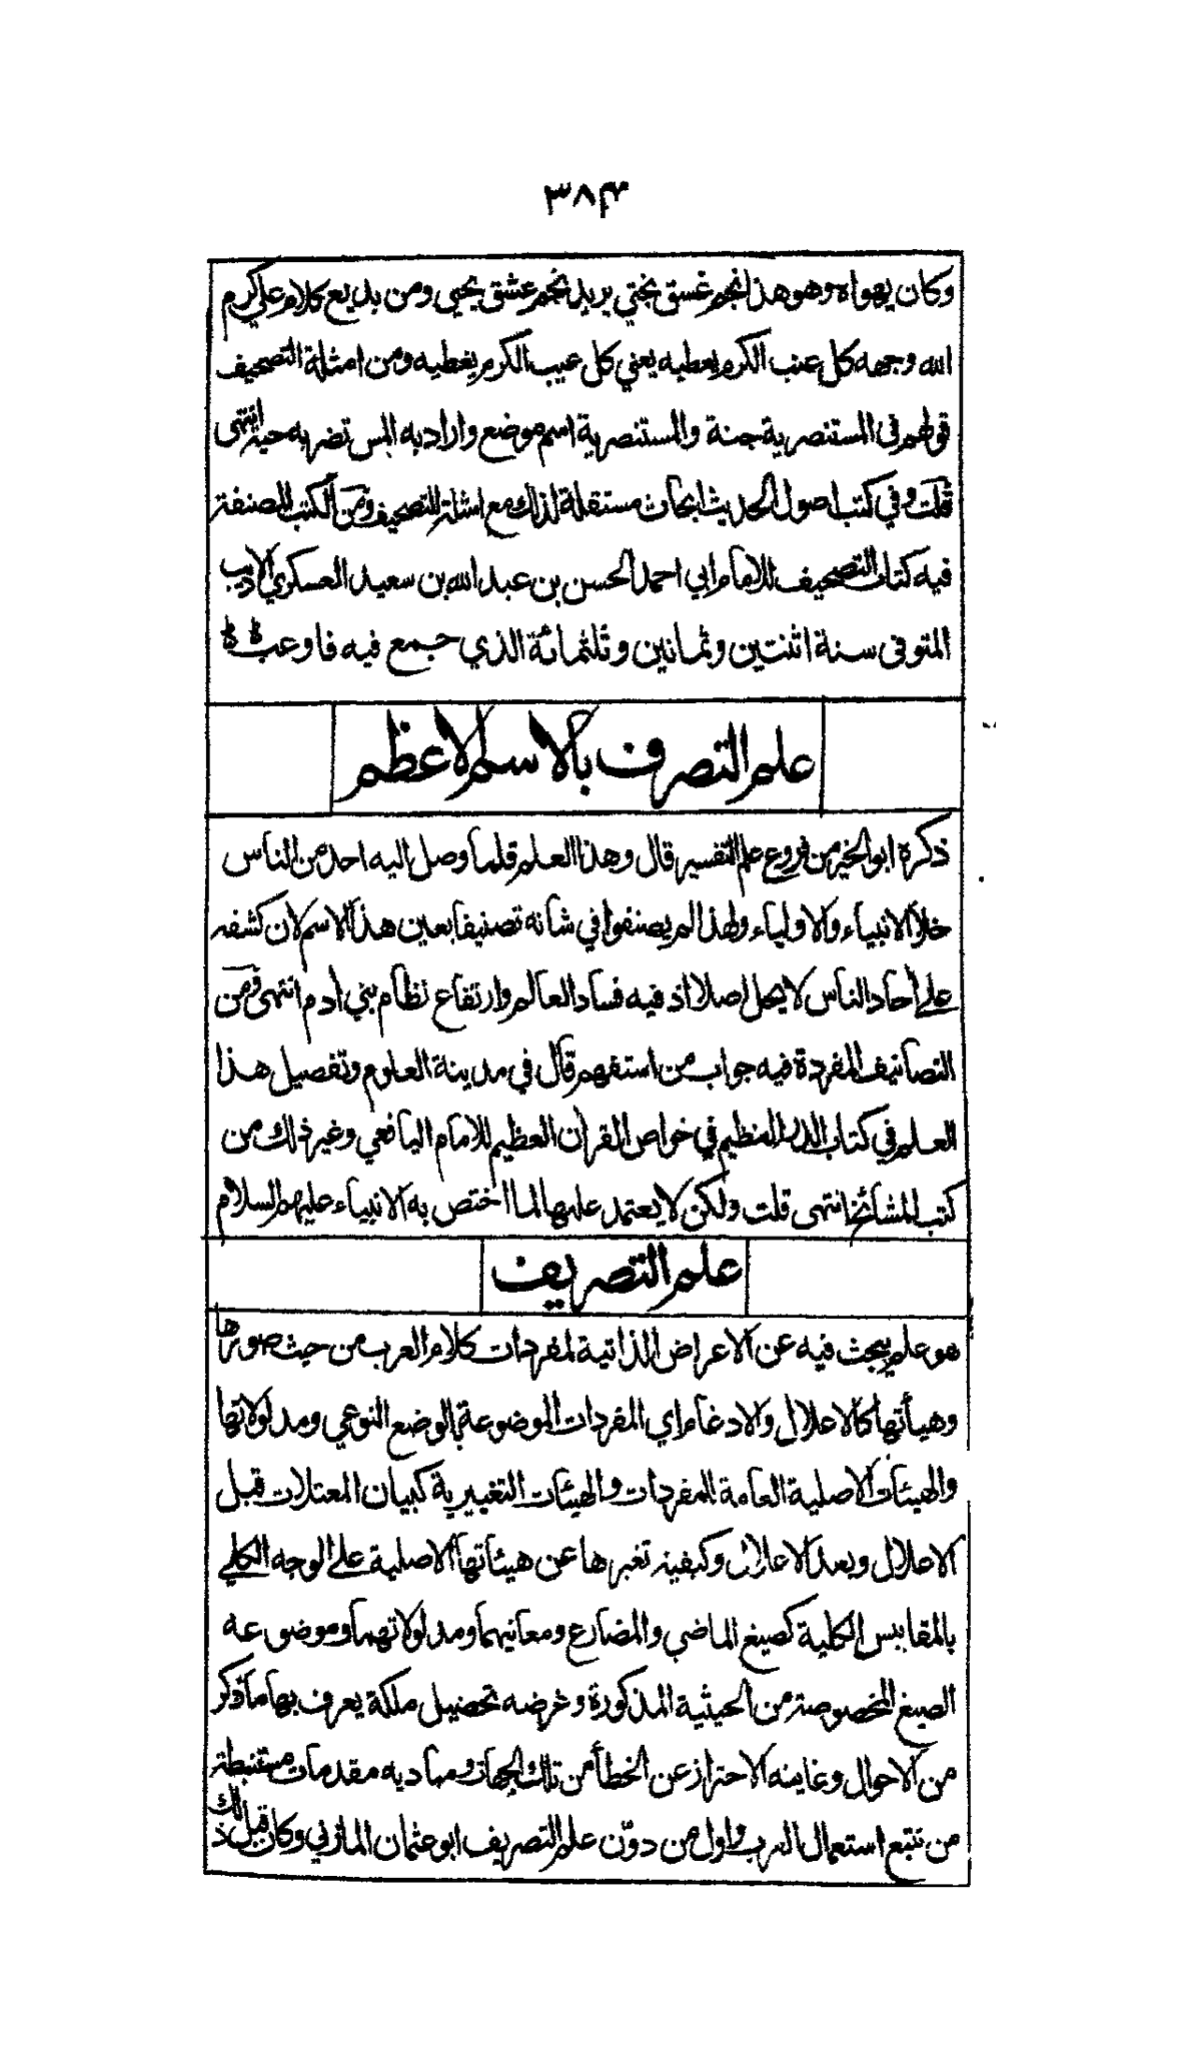 ٣٨٤
وكان يهواه وهو هذا نجم غسق بختي يريد نجم عشق يحيى ومن بديع كلام علي كرم
الله وجهه كل عنب الكرم يعطيه يعني كل عيب الكرم يغطيه ومن امثلة التصحيف
قولهم في المستنصرية جنة والمستنصرية اسم موضع واراد به المس تضربه حية انتهى
قلت وفي كتب اصول الحديث ابحاث مستقلة لذلك مع امثلة للتصحيف ومن الكتب المصنفة
فيه كتاب التصحيف للامام ابي احمد الحسن بن عبد الله بن سعيد العسكري الاديب
المتوفى سنة اثنتين وثمانين وثلثمائة الذي جمع فيه فاوعب
علم التصرف بالاسم الاعظم
ذكره ابو الخير من فروع علم التفسير قال وهذا العلم قلما وصل اليه احد من الناس
خلا الانبياء والاولياء ولهذا لم يصنفوا في شانه تصنيفا بعين هذا الاسم لان كشفه
على آحاد الناس لا يحل اصلا اذ فيه فساد العالم وارتفاع نظام بني ادم انتهى ومن
التصانيف المفردة فيه جواب من استفهم قال في مدينة العلوم وتفصيل هذا
العلم في كتاب الدر النظيم في خواص القران العظيم للامام اليافعي وغير ذلك من
كتب المشائخ انتهى قلت ولكن لا يعتمد عليها لما اختص به الانبياء عليهم السلام
علم التصريف
هو علم يبحث فيه عن الاعراض الذاتية لمفردات كلام العرب من حيث صورها
وهيأتها كالاعلال والادغام اي المفردات الموضوعة بالوضع النوعي ومدلولاتها
والهيئات الاصلية العامة للمفردات والهيئات التغييرية كبيان المعتلات قبل
الاعلال وبعد الاعلال وكيفية تغيرها عن هيئاتها الاصلية على الوجه الكلي
بالمقاييس الكلية كصيغ الماضي والمضارع ومعانيهما ومدلولاتهما وموضوعه
الصيغ المخصوصة من الحيثية المذكورة وغرضه تحصيل ملكة يعرف بها ما ذكر
من الاحوال وغايته الاحتراز عن الخطأ من تلك الجهات ومباديه مقدمات مستنبطة
من تتبع استعمال العرب واول من دوّن علم التصريف ابو عثمان المازني وكان قبل ذلك